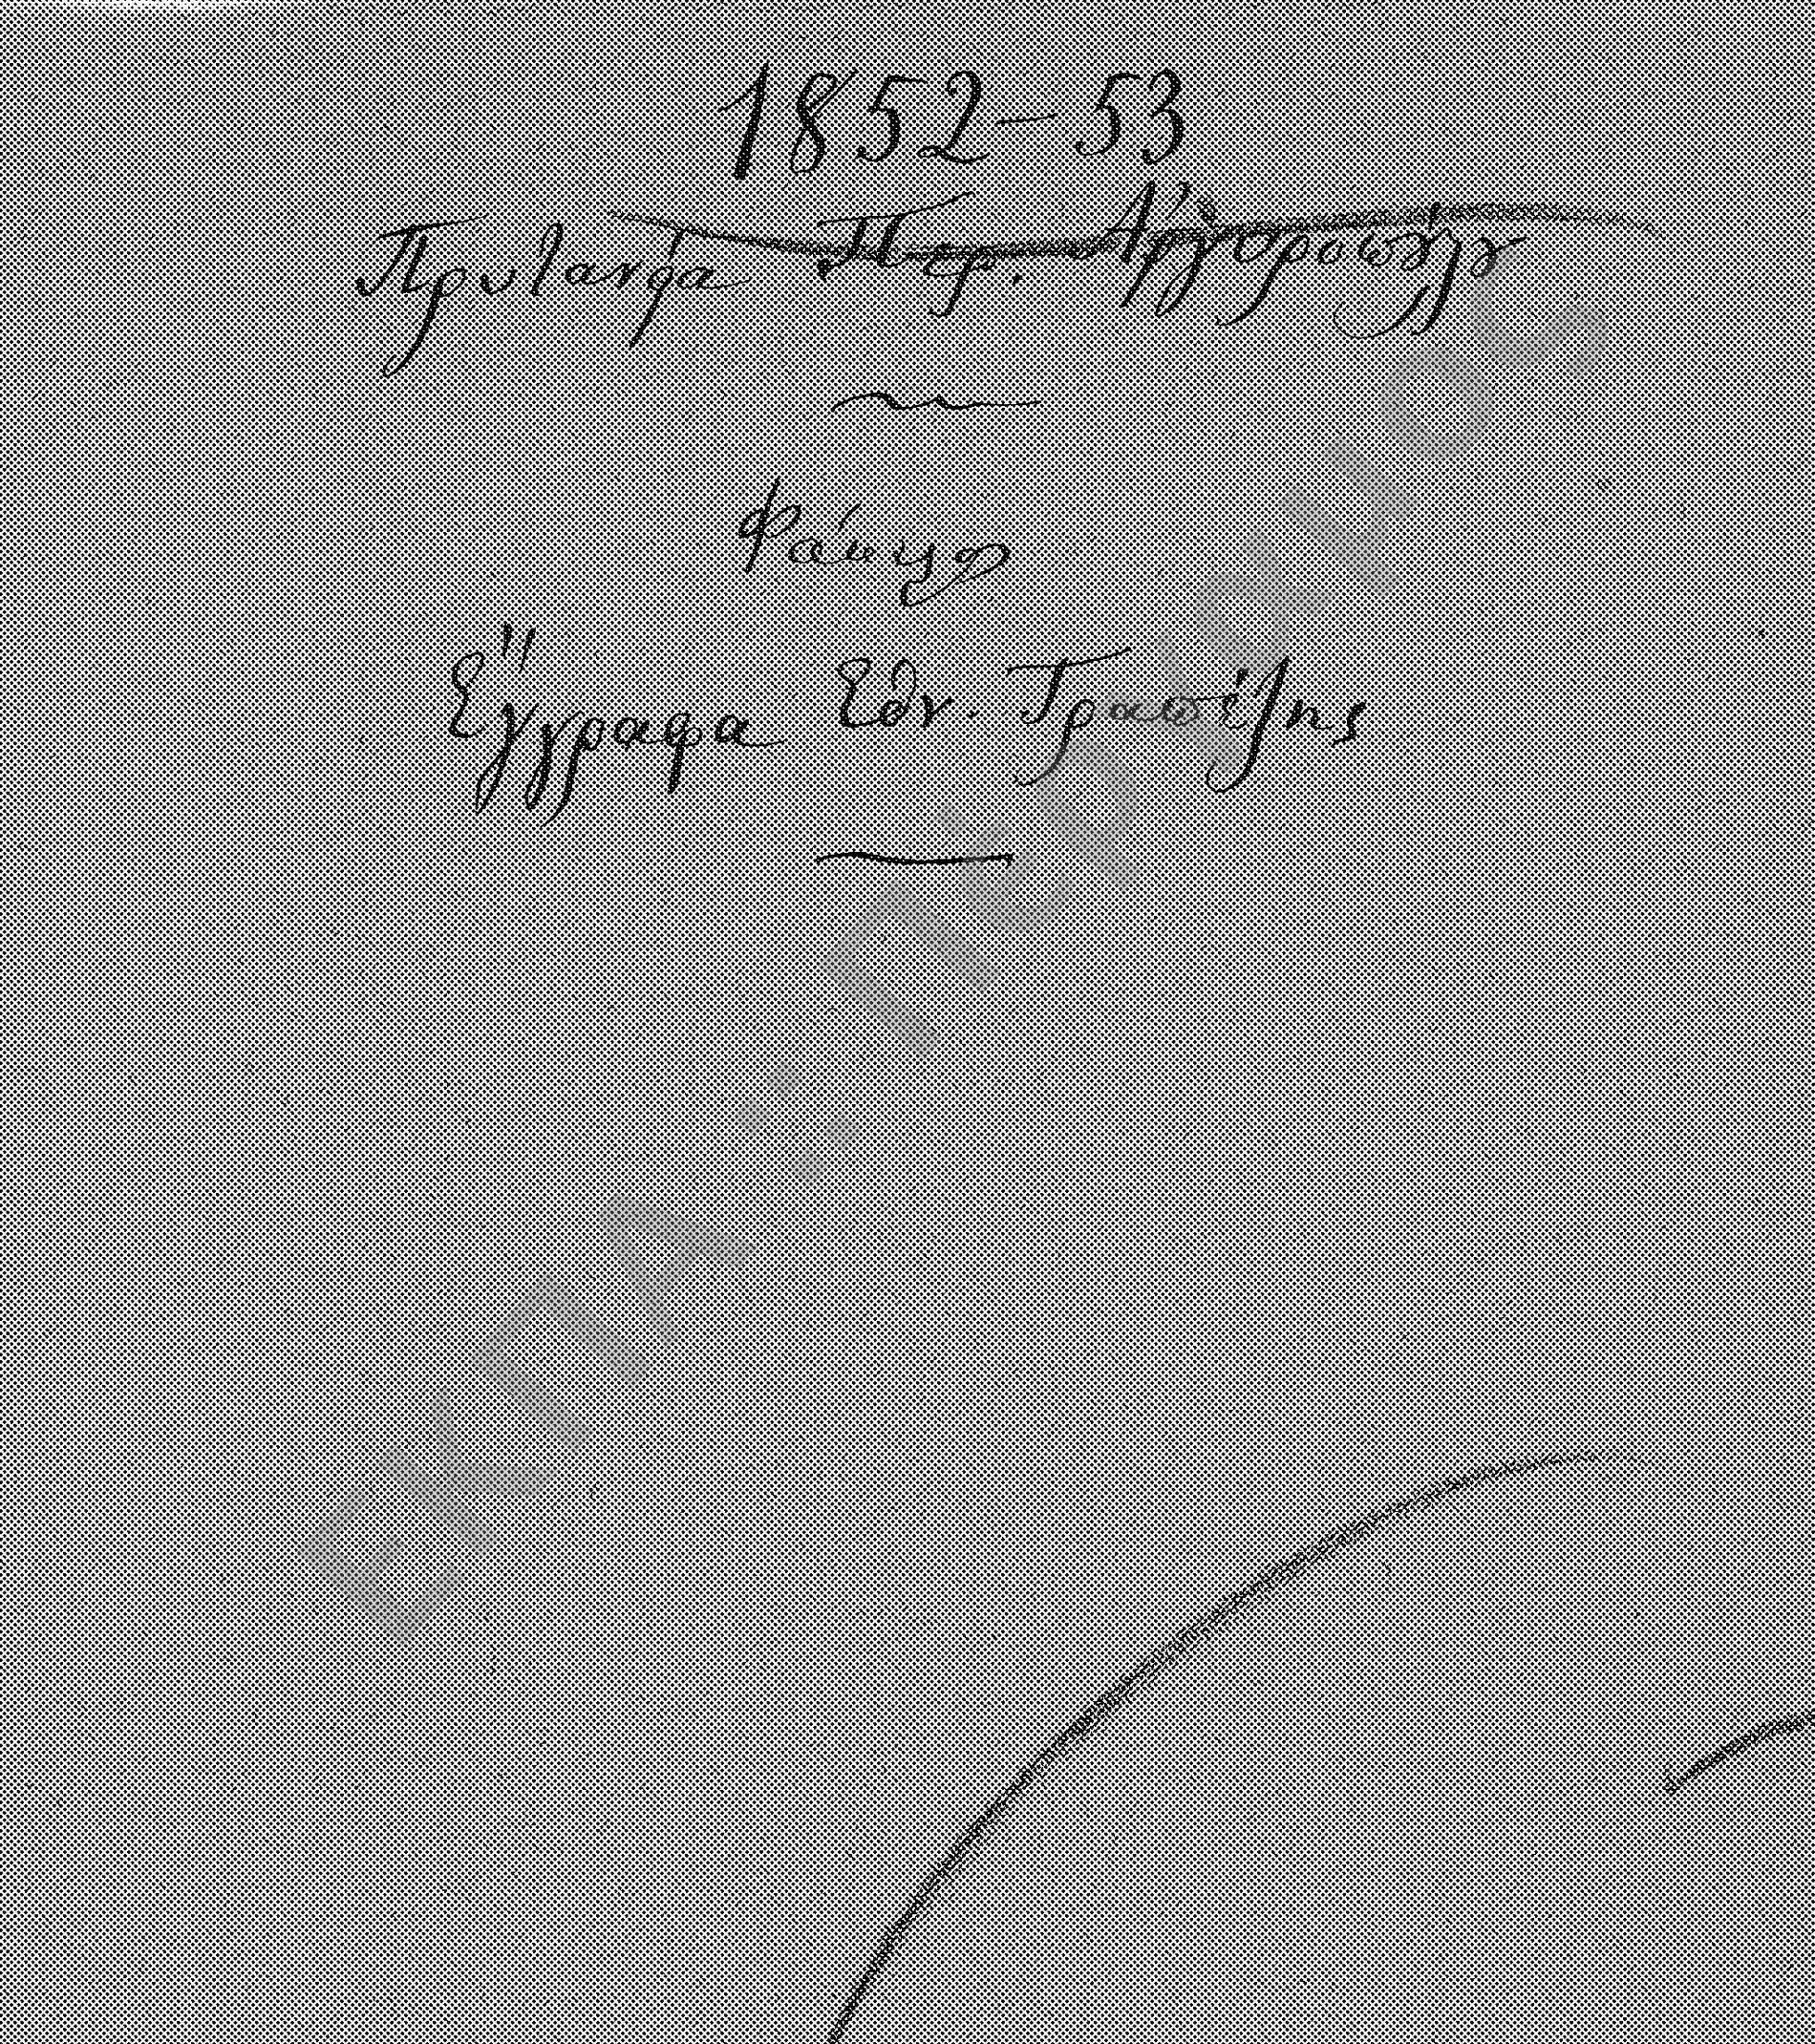 1852-53
Πρυτανεία Περ. Ἀργυροπούλου
Φάκελλος
Ἔγγραφα Ἐθν. Τραπέζης